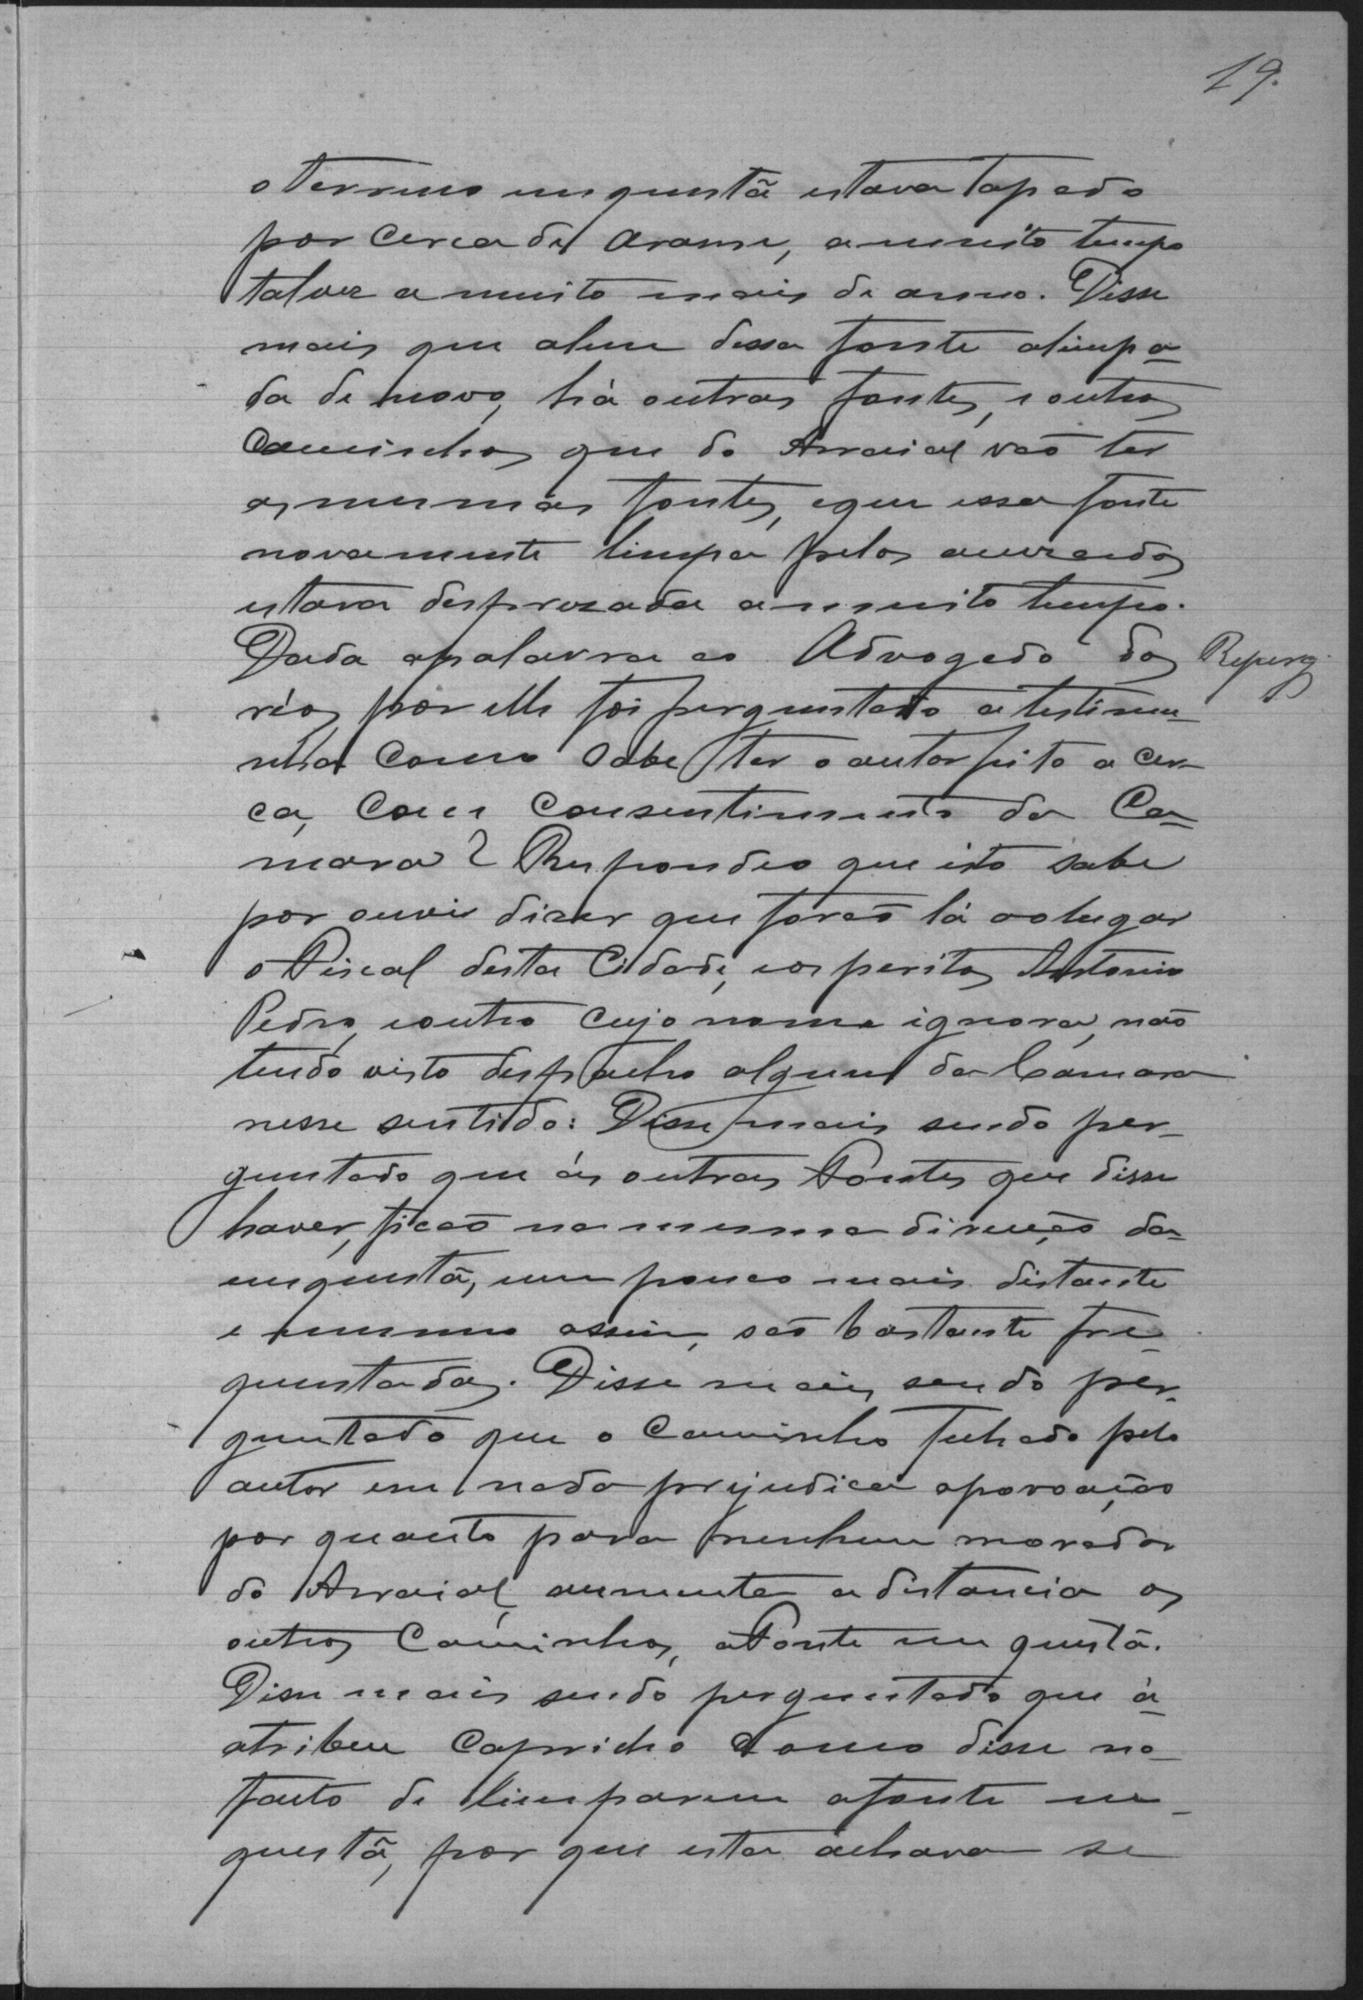 19.
o terreno em questã estava tapado
por cerca de arame, a muito tempo
talvez a muito mais de anno. Disse
mais que alem dessa fonte alimpa-
da de novo, há outras fontes, e outros
caminhos que do Arraial vaõ ter
as mesmas fontes, e que essa fonte
novamente limpa pelos accusados
estava desprezada a muito tempo.
Dada a palavra ao Advogado dos
Reperg.
réos por elle foi perguntado a testimu-
nha como sabe ter o autor feito a cer-
ca, com consentimento da Ca-
mara? Respondeo que isto sabe
por ouvir dizer que foraõ lá ao lugar
o Fiscal desta Cidade, e os peritos Antonio
Pedro, e outro cujo nome ignora, naõ
tendo visto despacho algum da Camara
nesse sentido: Disse mais sendo per-
guntado que ás outras Fontes que disse
haver, ficaõ na mesma direcção da
em questã, um pouco mais distante
e mesmo assim, saõ bastante fre-
quentadas. Disse mais, sendo per-
guntado que o caminho fechado pelo
autor em nada prejudica a povoação
por quanto para nenhum morador
do Arraial, aumenta a distancia os
outros Caminhos, a Fonte em questã.
Disse mais sendo perguntado que á-
atribue capricho como disse no-
facto de limparem a fonte em-
questã, por que esta achava se